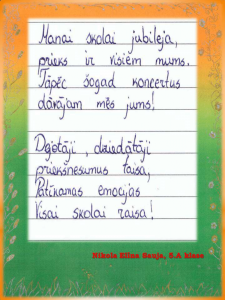 Manai skolai jubileja,
prieks ir visiem mums.
Tāpēc šogad koncertus
dārājam mēs jums!
Dejotāji, dziedātāji
priekšnesumus taisa,
Patīkamas emocijas
Visai skolai raisa!
Nikola Elīna Gauja, 5.A klase